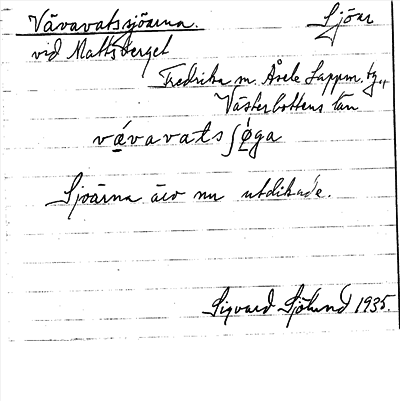 Vävavatssjöarna. Sjöar
vid Mattsberget
Fredrika sn. Åsele Lappm. tg.,
Västerbottens län
vävavatsʃöga
Sjöarna äro nu utdikade.
Sigvard Sjölund 1935.